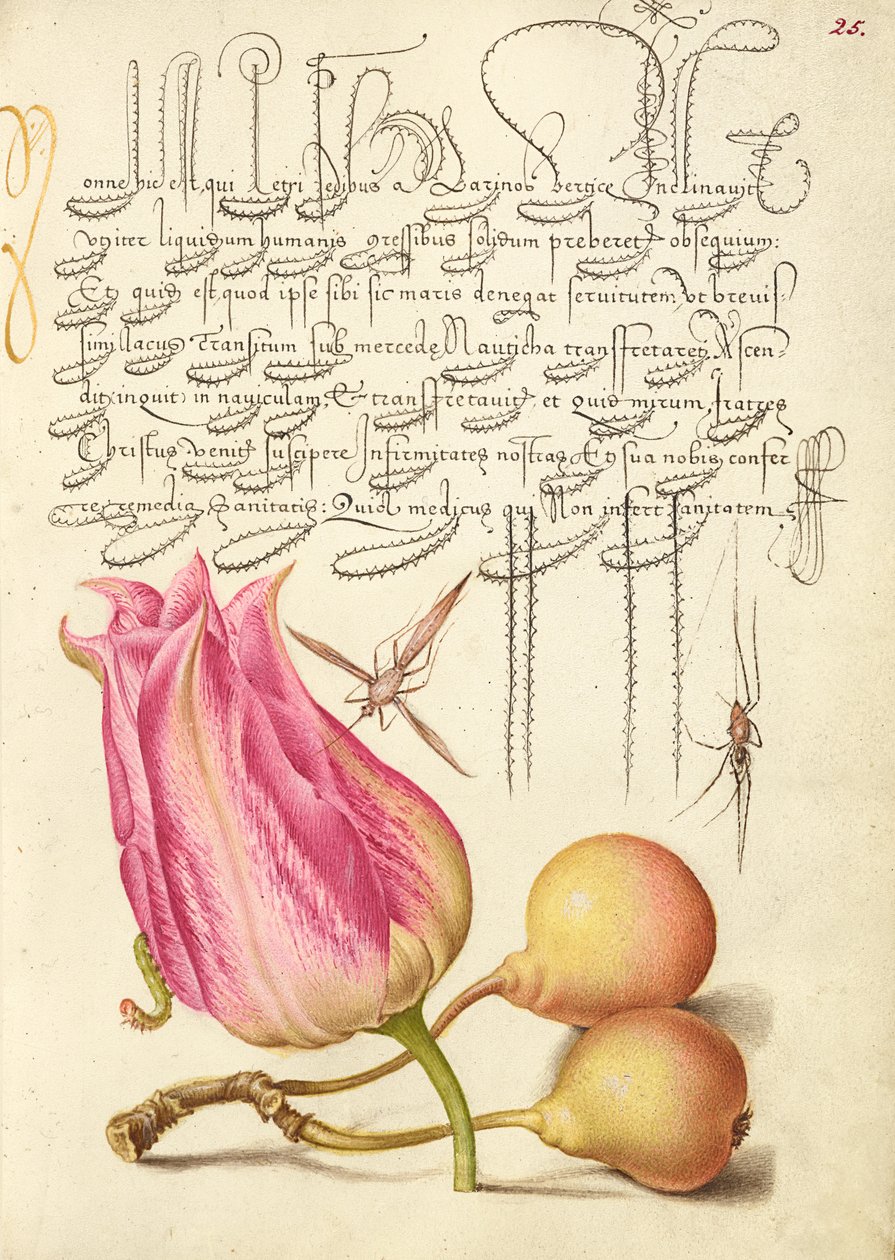 25.
Nonne hic est, qui Petri pedibus a Marinos Vertice Inclinavit
vt iter liquidum humanis gressibus solidum preberet obsequium:
Et quid est, quod ipse sibi sic maris denegat servitutem, vt brevis-
simi lacus Transitum sub mercede Nauticha transfretaret; Ascen-
dit (inquit) in naviculam, & transfretavit, et Quid mirum, fratres
Christus venit suscipere Infirmitates nostras Et sua nobis confer
re remedia Sanitatis: Quia medicus qui Non infert sanitatem